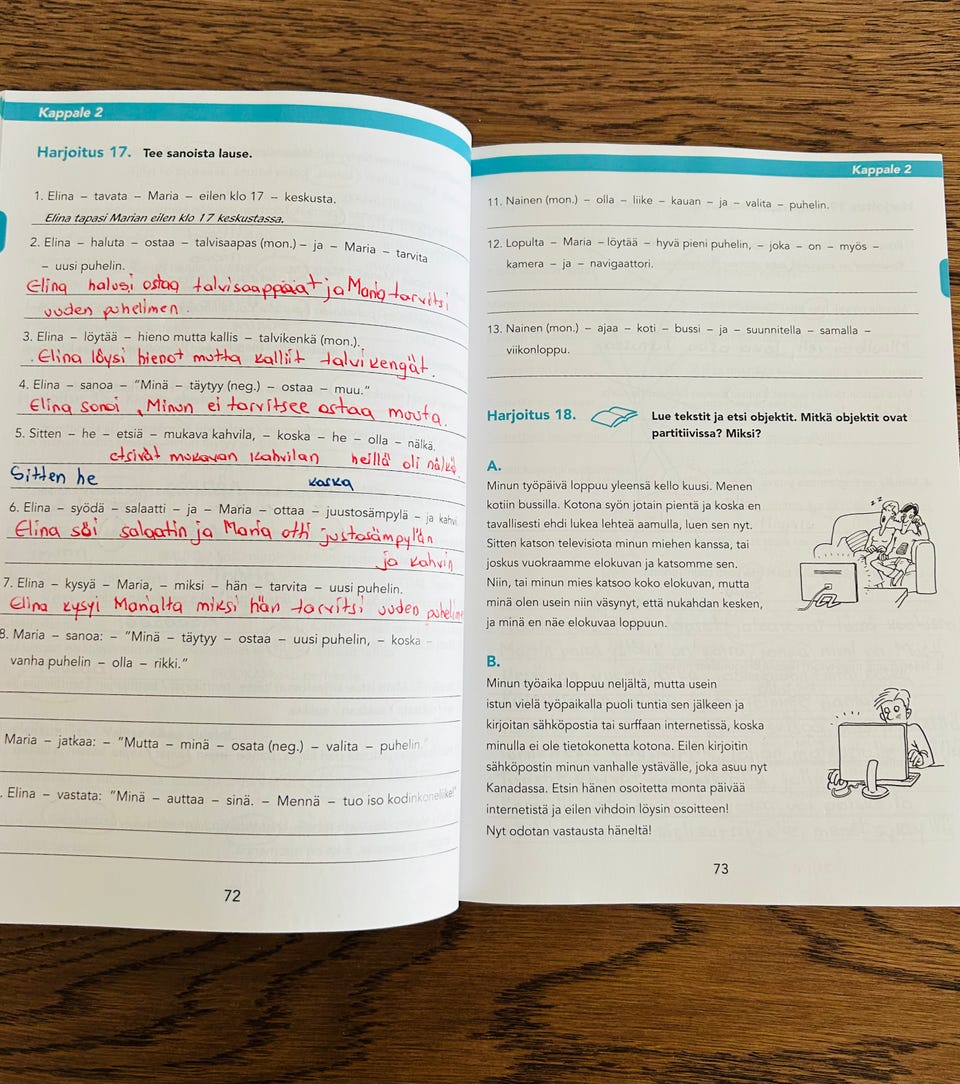 Kappale 2
Harjoitus 17. Tee sanoista lause.
1. Elina – tavata – Maria – eilen klo 17 – keskusta.
Elina tapasi Marian eilen klo 17 keskustassa.
2. Elina – haluta – ostaa – talvisaapas (mon.) – ja – Maria – tarvita
– uusi puhelin.
Elina halusi ostaa talvisaappaat ja Maria tarvitsi
uuden puhelimen.
3. Elina – löytää – hieno mutta kallis – talvikenkä (mon.).
Elina löysi hienot mutta kalliit talvikengät.
4. Elina – sanoa – "Minä – täytyy (neg.) – ostaa – muu."
Elina sanoi, Minun ei tarvitsee ostaa muuta.
5. Sitten – he – etsiä – mukava kahvila, – koska – he – olla – nälkä.
etsivät mukavan kahvilan heillä oli nälkä
Sitten he koska
6. Elina – syödä – salaatti – ja – Maria – ottaa – juustosämpylä – ja kahvi
Elina söi salaatin ja Maria otti justosämpylän
ja kahvin
7. Elina – kysyä – Maria, – miksi – hän – tarvita – uusi puhelin.
Elina kysyi Marialta miksi hän tarvitsi uuden puhelime
8. Maria – sanoa: – "Minä – täytyy – ostaa – uusi puhelin, – koska –
vanha puhelin – olla – rikki."
Maria – jatkaa: – "Mutta – minä – osata (neg.) – valita – puhelin."
. Elina – vastata: "Minä – auttaa – sinä. – Mennä – tuo iso kodinkoneliike!"
72
Kappale 2
11. Nainen (mon.) – olla – liike – kauan – ja – valita – puhelin.
12. Lopulta – Maria – löytää – hyvä pieni puhelin, – joka – on – myös –
kamera – ja – navigaattori.
13. Nainen (mon.) – ajaa – koti – bussi – ja – suunnitella – samalla –
viikonloppu.
Harjoitus 18. Lue tekstit ja etsi objektit. Mitkä objektit ovat
partitiivissa? Miksi?
A.
Minun työpäivä loppuu yleensä kello kuusi. Menen
kotiin bussilla. Kotona syön jotain pientä ja koska en
tavallisesti ehdi lukea lehteä aamulla, luen sen nyt.
Sitten katson televisiota minun miehen kanssa, tai
joskus vuokraamme elokuvan ja katsomme sen.
Niin, tai minun mies katsoo koko elokuvan, mutta
minä olen usein niin väsynyt, että nukahdan kesken,
ja minä en näe elokuvaa loppuun.
z z
B.
Minun työaika loppuu neljältä, mutta usein
istun vielä työpaikalla puoli tuntia sen jälkeen ja
kirjoitan sähköpostia tai surffaan internetissä, koska
minulla ei ole tietokonetta kotona. Eilen kirjoitin
sähköpostin minun vanhalle ystävälle, joka asuu nyt
Kanadassa. Etsin hänen osoitetta monta päivää
internetistä ja eilen vihdoin löysin osoitteen!
Nyt odotan vastausta häneltä!
73